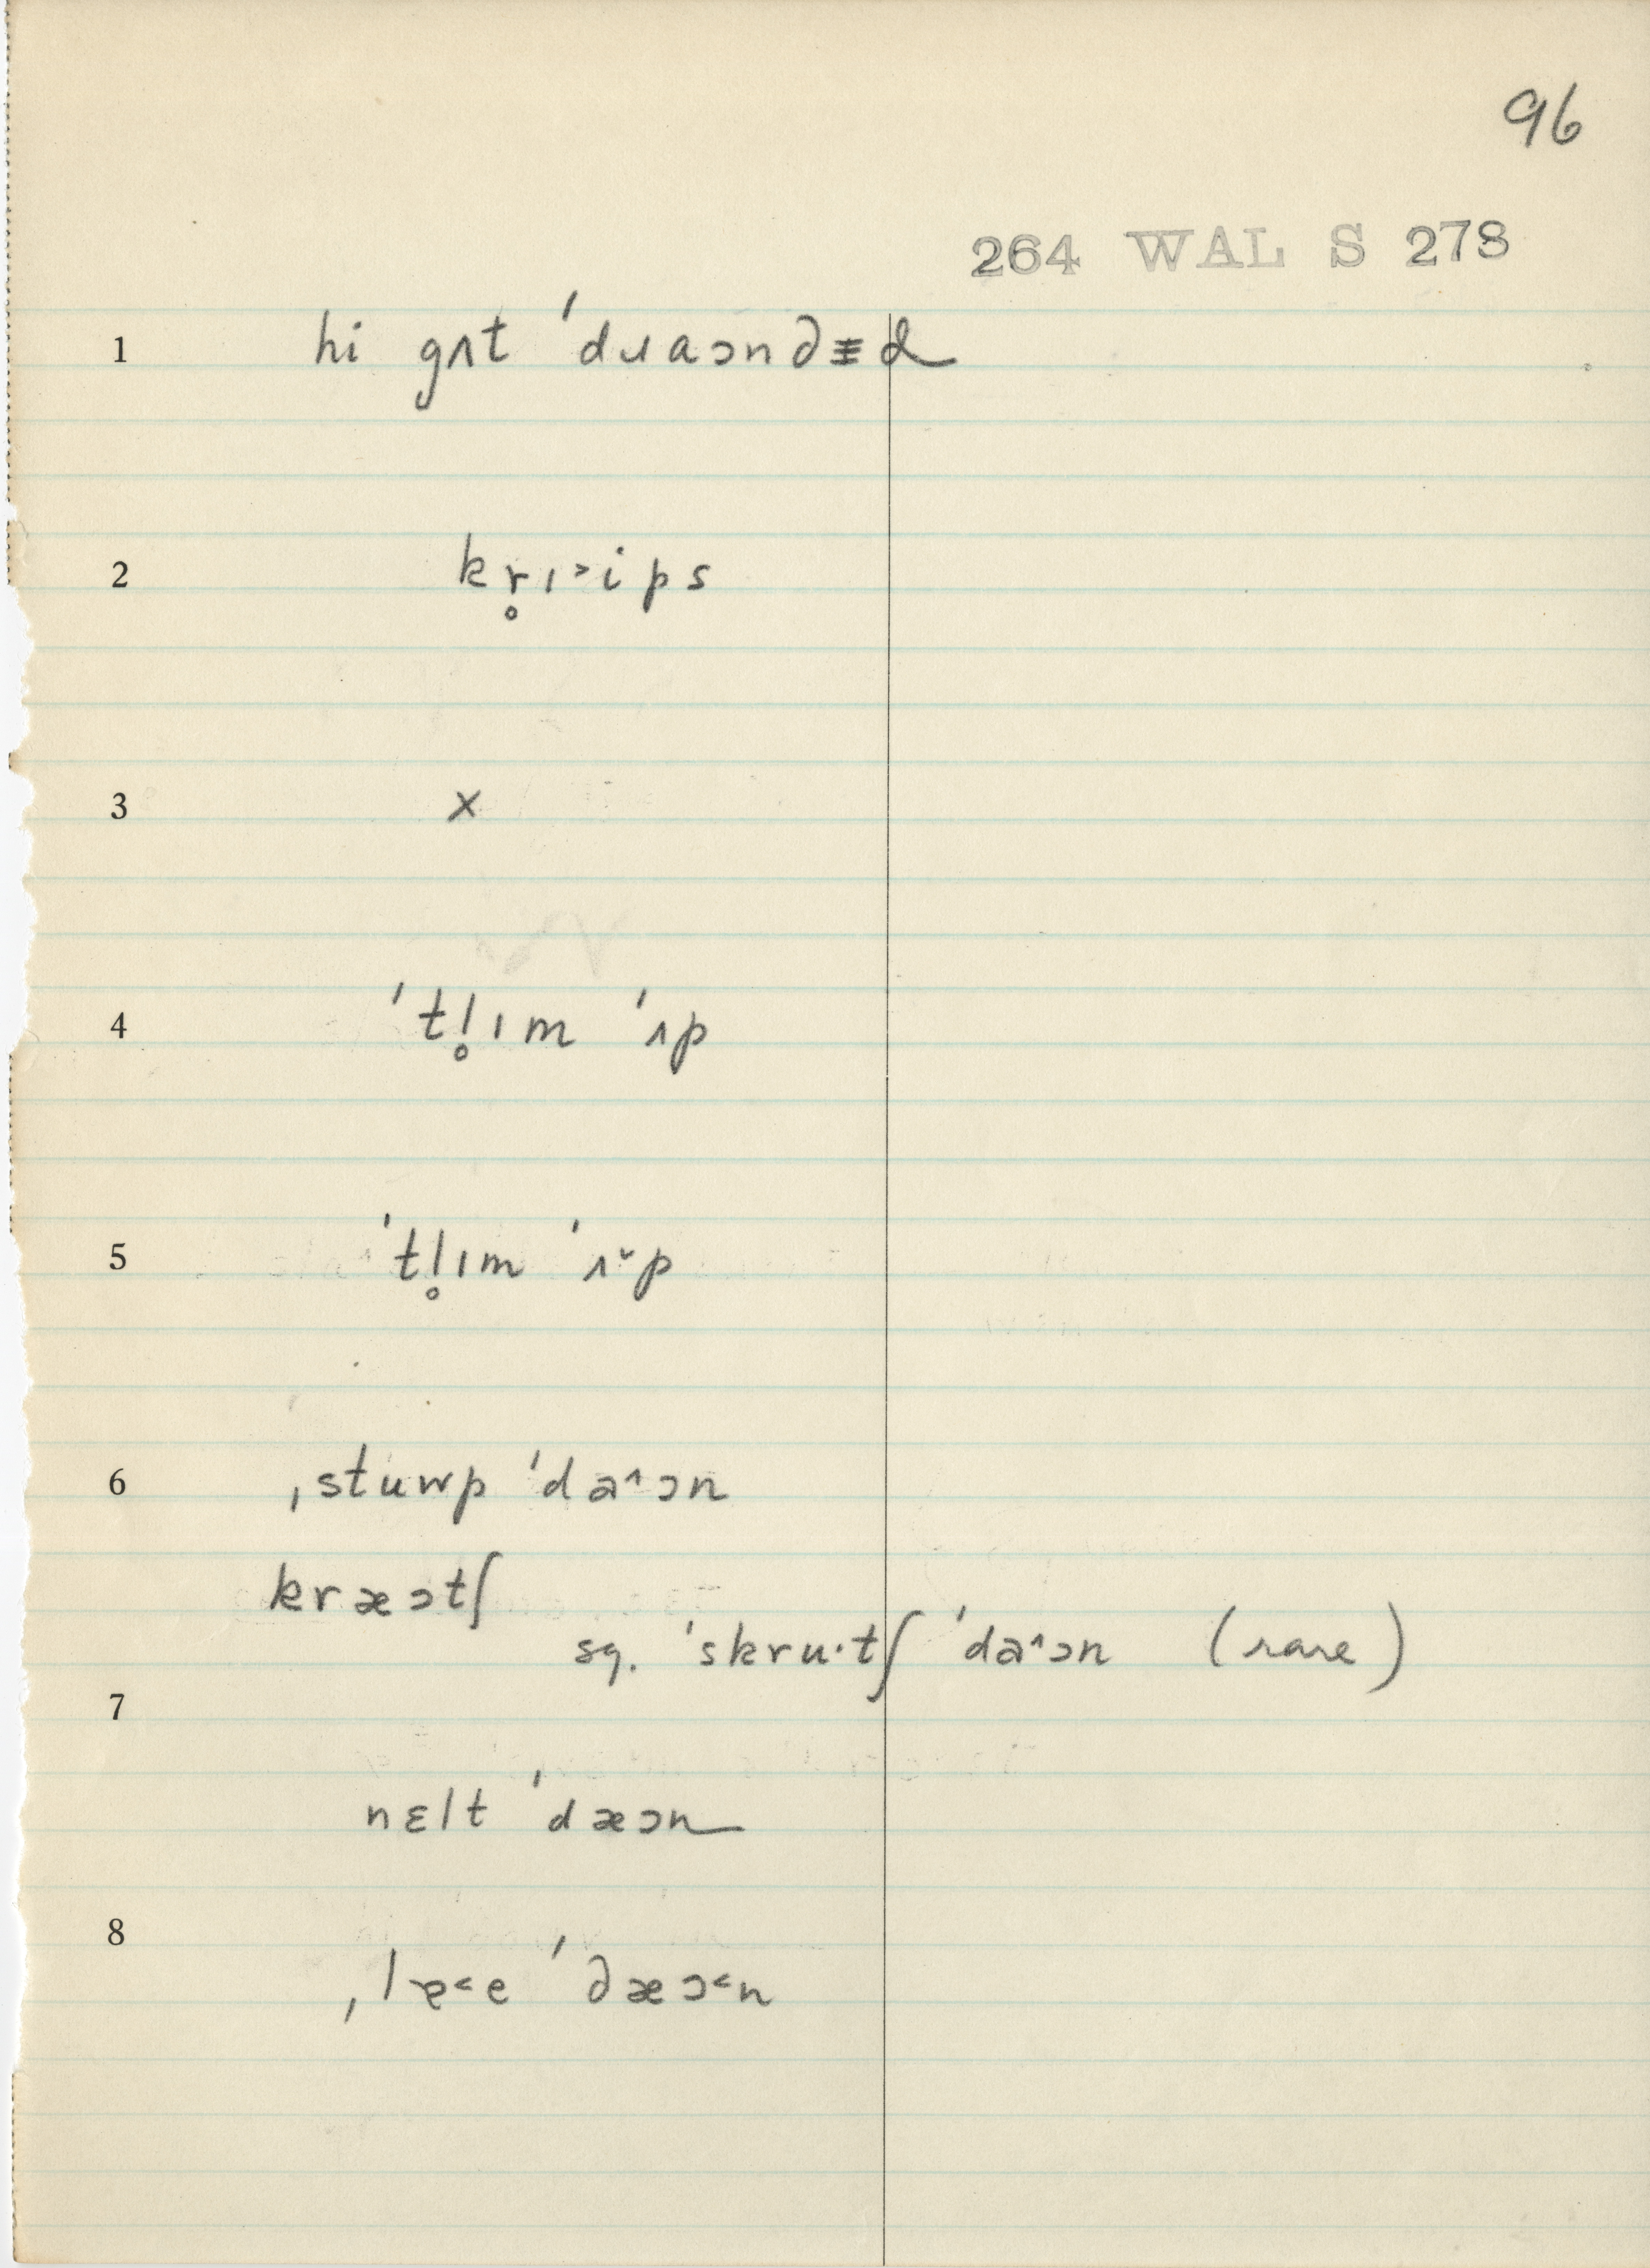 96
264 WAL S 273
1 hi gʌt ˈdɹaɔnd̶əd
2 kr̥ɪ˃ips
3 x
4 ˈtl̥ɪm ˈʌp
5 ˈtl̥ɪm ˈʌ˅p
6 ˌstuwp ˈda˄ɔn
kræɔtʃ
sg. ˈskru·tʃ ˈda˄ɔn (rare)
7
nɛlt ˈdæɔn
8
ˌlɐ˂e ˈdæɔ˂n